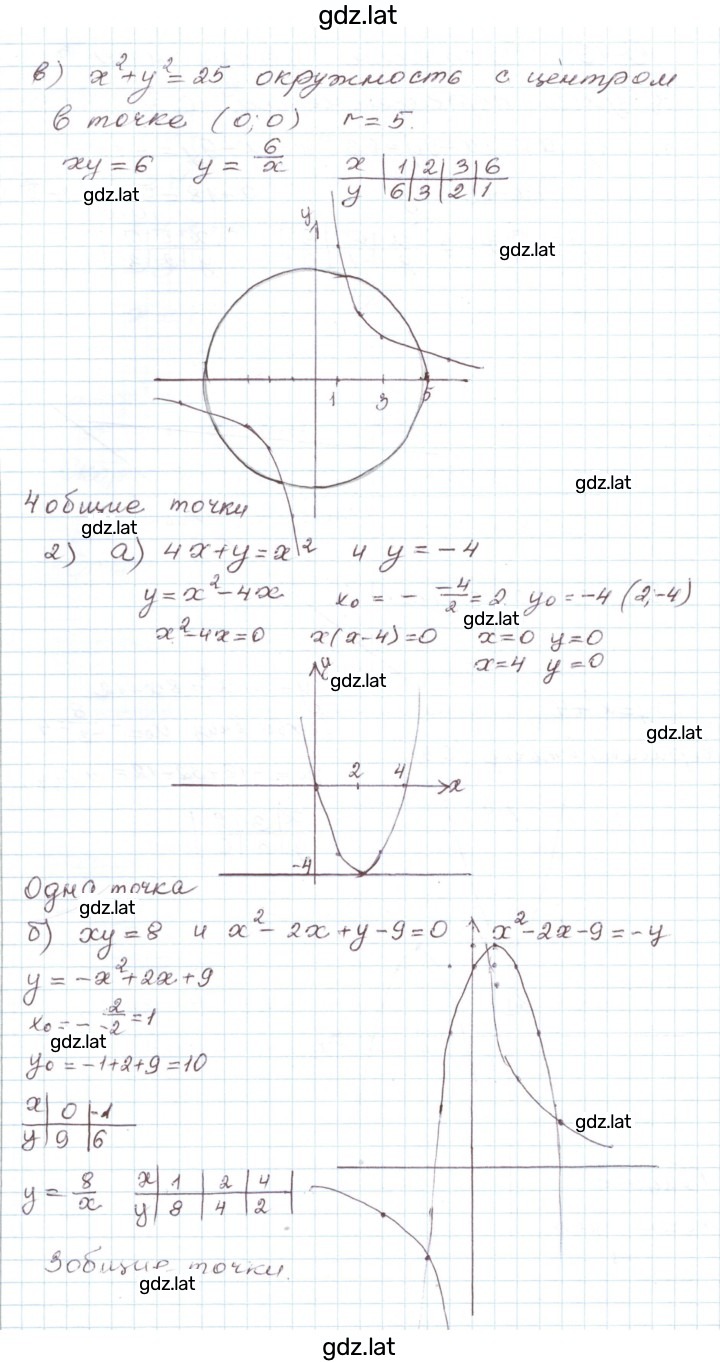 gdz.lat
в) x²+y²=25 окружность с центром
в точке (0;0) r=5.
xy=6 y=6/x x | 1 | 2 | 3 | 6
y | 6 | 3 | 2 | 1
gdz.lat
y
gdz.lat
1 3 5
gdz.lat
4 общие точки
gdz.lat
2) а) 4x+y=x² и y=-4
y=x²-4x x₀ = - -4/2 = 2. y₀=-4 (2;-4)
gdz.lat
x²-4x=0 x(x-4)=0 x=0 y=0
x=4 y=0
y
gdz.lat
gdz.lat
2 4 x
-4
Одна точка
gdz.lat
б) xy=8 и x²-2x+y-9=0 x²-2x-9=-y
y=-x²+2x+9
x₀=- 2/-2 =1
gdz.lat
y₀=-1+2+9=10
x | 0 | -1
y | 9 | 6
gdz.lat
y=8/x x | 1 | 2 | 4
y | 8 | 4 | 2
3 общие точки.
gdz.lat
gdz.lat